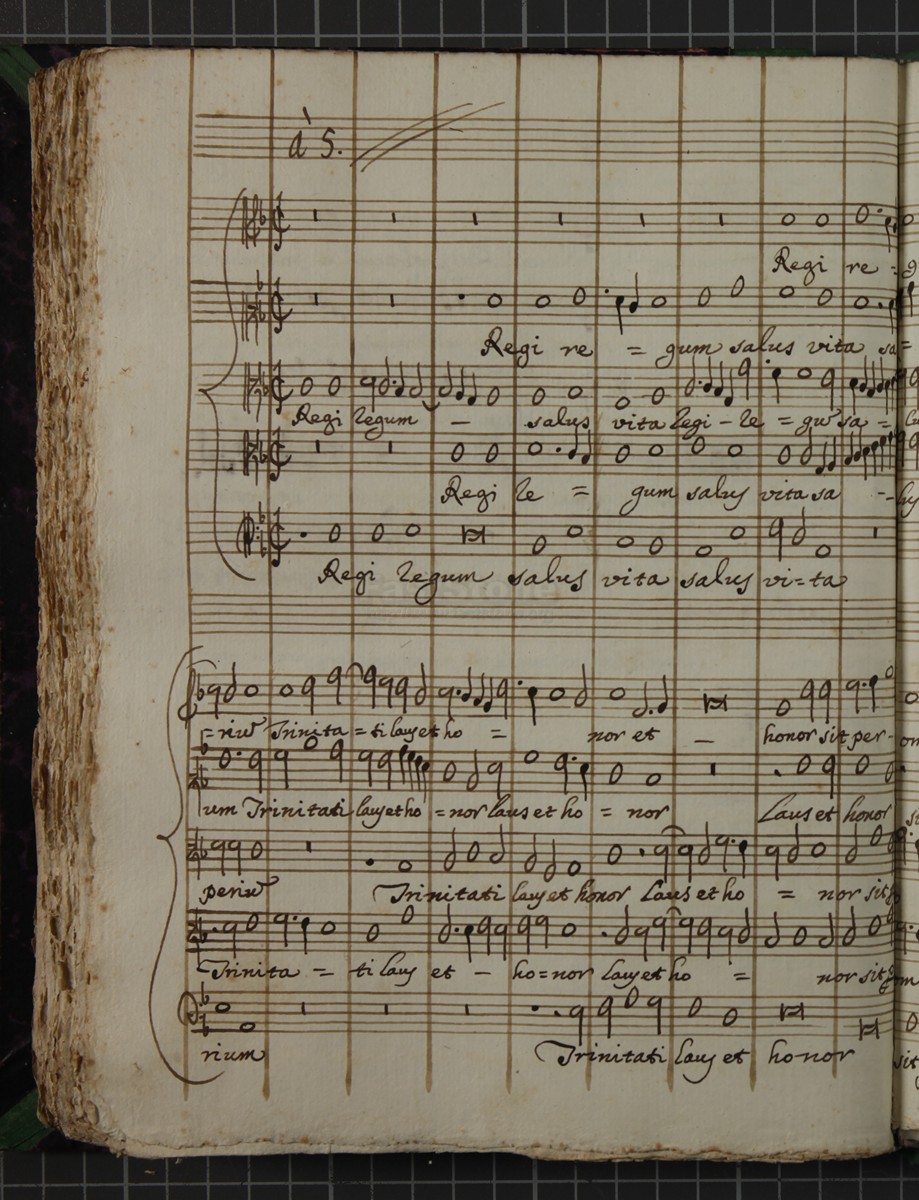 à 5.
Regi re =
Regi re = gum salus vita sa =
Regi regum – salus vita Regi – re = gū sa =
Regi re = gum salus vita sa -
Regi regum salus vita salus vi=ta
= riū Trinita = ti laus et ho = nor et – honor sit per-
um Trinitati laus et ho = nor laus et ho = nor Laus et honor
periū Trinitati laus et honor Laus et ho = nor sit
Trinita = ti laus et – ho=nor laus et ho = nor sit
rium Trinitati laus et honor